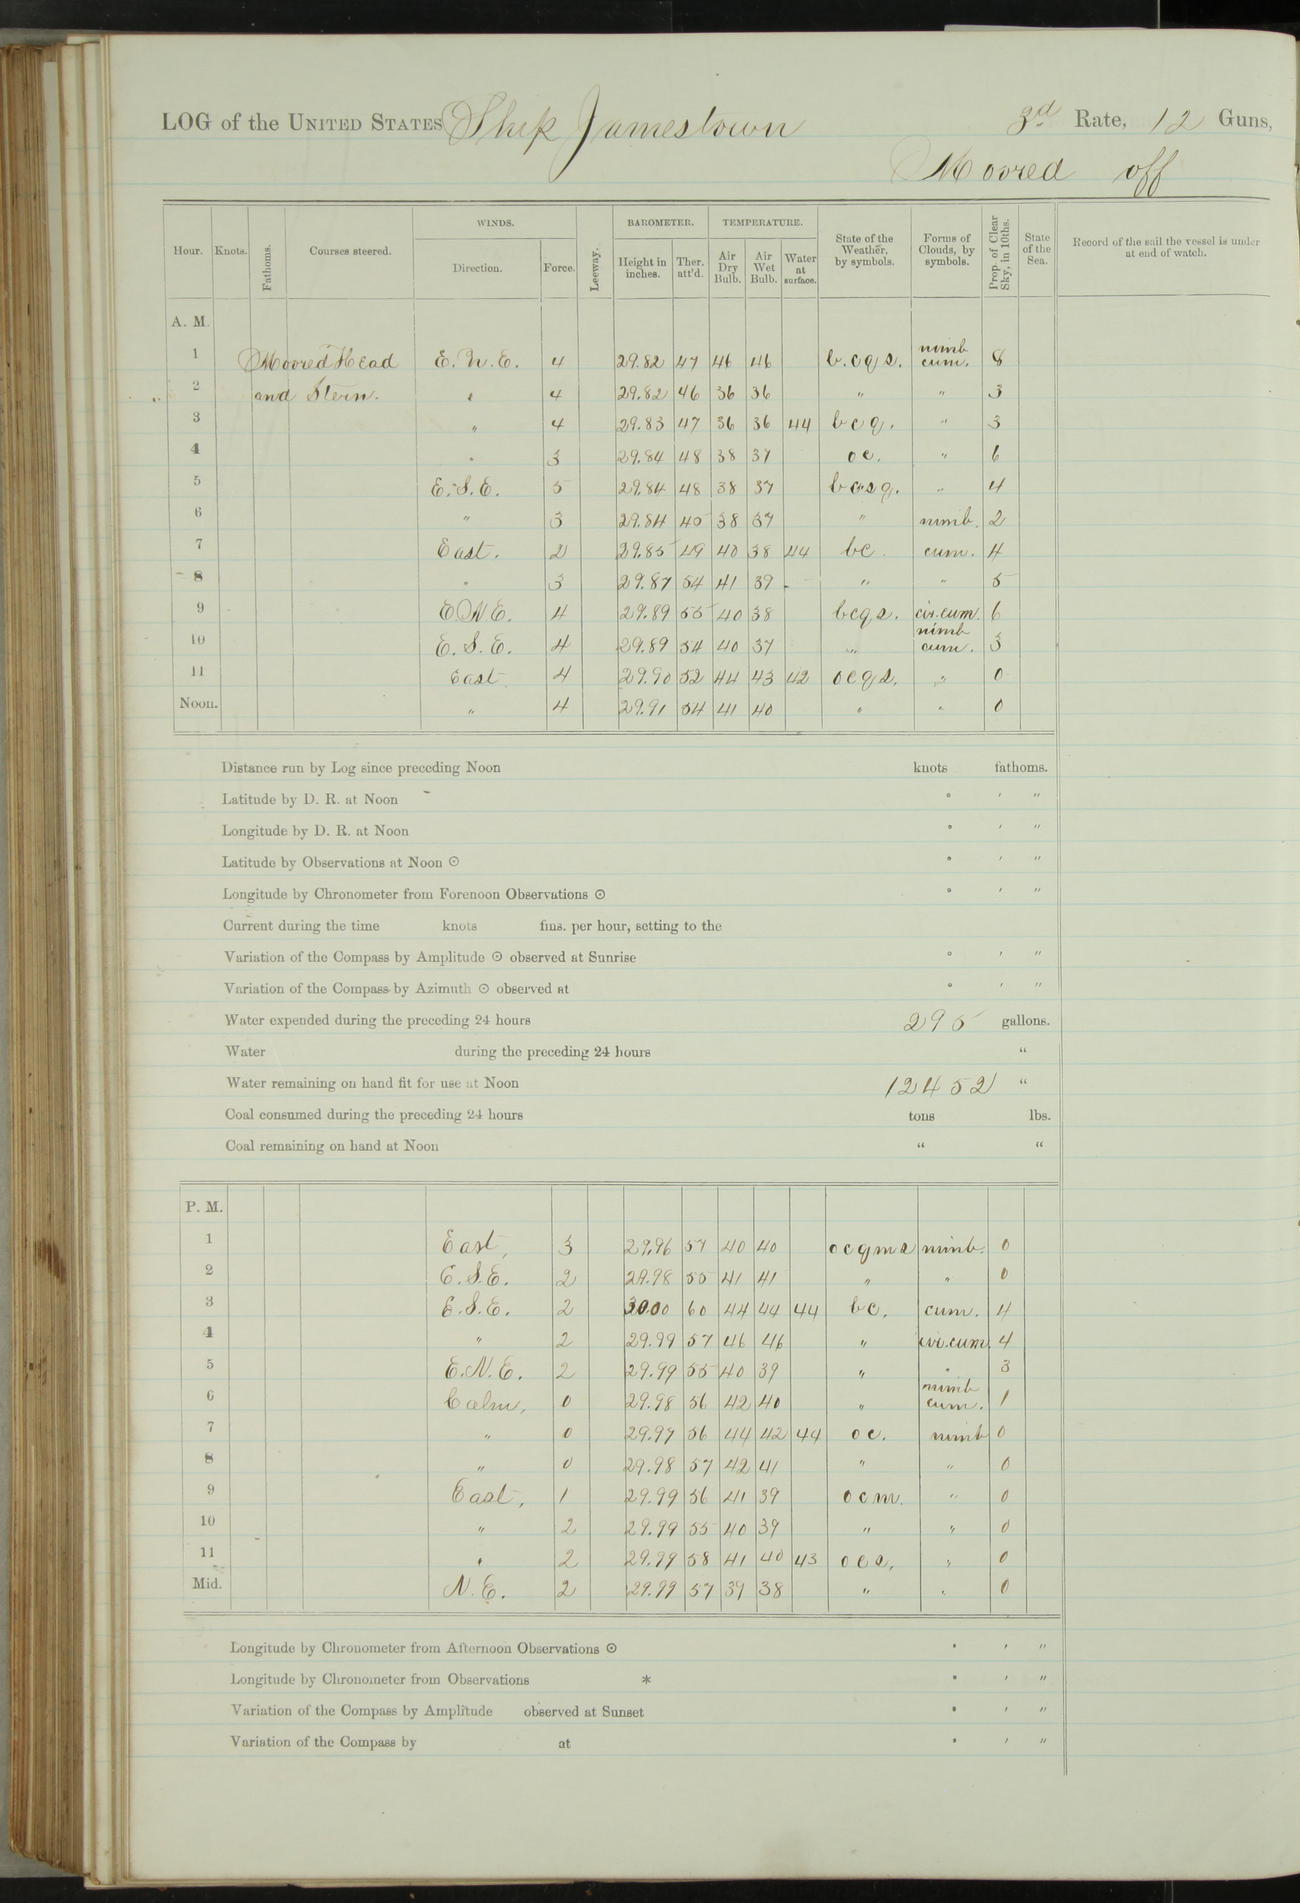 LOG of the UNITED STATES Ship Jamestown 3rd Rate, 12 Guns,
Moored off
Hour. Knots. Fathoms. Courses steered. WINDS. Direction. Force. Leeway. BAROMETER. Height in inches. Ther. att'd. TEMPERATURE. Air Dry Bulb. Air Wet Bulb. Water at surface. State of the Weather, by symbols. Forms of Clouds, by symbols. Prop. of Clear Sky, in 10ths. State of the Sea. Record of the sail the vessel is under at end of watch.
A. M.
1 Moored Head E. N. E. 4 29.82 47 46 46 b.cqs. nimb cum. 8
2 and Stern. " 4 29.82 46 36 36 " " 3
3 " 4 29.83 47 36 36 44 bcq. " 3
4 " 3 29.84 48 38 37 oc. " 6
5 E. S. E. 5 29.84 48 38 37 bcsq. " 4
6 " 3 29.84 38 37 " nimb. 2
7 East. 2 29.85 49 40 38 44 bc. cum. 4
8 " 3 29.87 54 41 39 " " 5
9 E N E. 4 29.89 55 40 38 bcqs. cir.cum. 6
10 E. S. E. 4 29.89 54 40 37 " nimb cum. 3
11 East 4 29.90 52 44 43 42 ocqs. " 0
Noon. " 4 29.91 54 41 40 " " 0
Distance run by Log since preceding Noon knots fathoms.
Latitude by D. R. at Noon ° ′ ″
Longitude by D. R. at Noon ° ′ ″
Latitude by Observations at Noon ⊙ ° ′ ″
Longitude by Chronometer from Forenoon Observations ⊙ ° ′ ″
Current during the time knots fms. per hour, setting to the
Variation of the Compass by Amplitude ⊙ observed at Sunrise ° ′ ″
Variation of the Compass by Azimuth ⊙ observed at ° ′ ″
Water expended during the preceding 24 hours 295 gallons.
Water during the preceding 24 hours "
Water remaining on hand fit for use at Noon 12452 "
Coal consumed during the preceding 24 hours tons lbs.
Coal remaining on hand at Noon " "
P. M.
1 East, 3 29.96 57 40 40 ocqms nimb. 0
2 E. S. E. 2 29.98 55 41 41 " " 0
3 E. S. E. 2 30.00 60 44 44 44 bc. cum. 4
4 " 2 29.99 57 46 46 " cir.cum. 4
5 E. N. E. 2 29.99 55 40 39 " " 3
6 Calm, 0 29.98 56 42 40 " nimb cum. 1
7 " 0 29.97 56 44 42 44 oc. nimb 0
8 " 0 29.98 57 42 41 " " 0
9 East, 1 29.99 56 41 39 ocm. " 0
10 " 2 29.99 55 40 39 " " 0
11 " 2 29.99 58 41 40 43 ocs. " 0
Mid. N. E. 2 29.99 57 39 38 " " 0
Longitude by Chronometer from Afternoon Observations ⊙ ° ′ ″
Longitude by Chronometer from Observations * ° ′ ″
Variation of the Compass by Amplitude observed at Sunset ° ′ ″
Variation of the Compass by at ° ′ ″